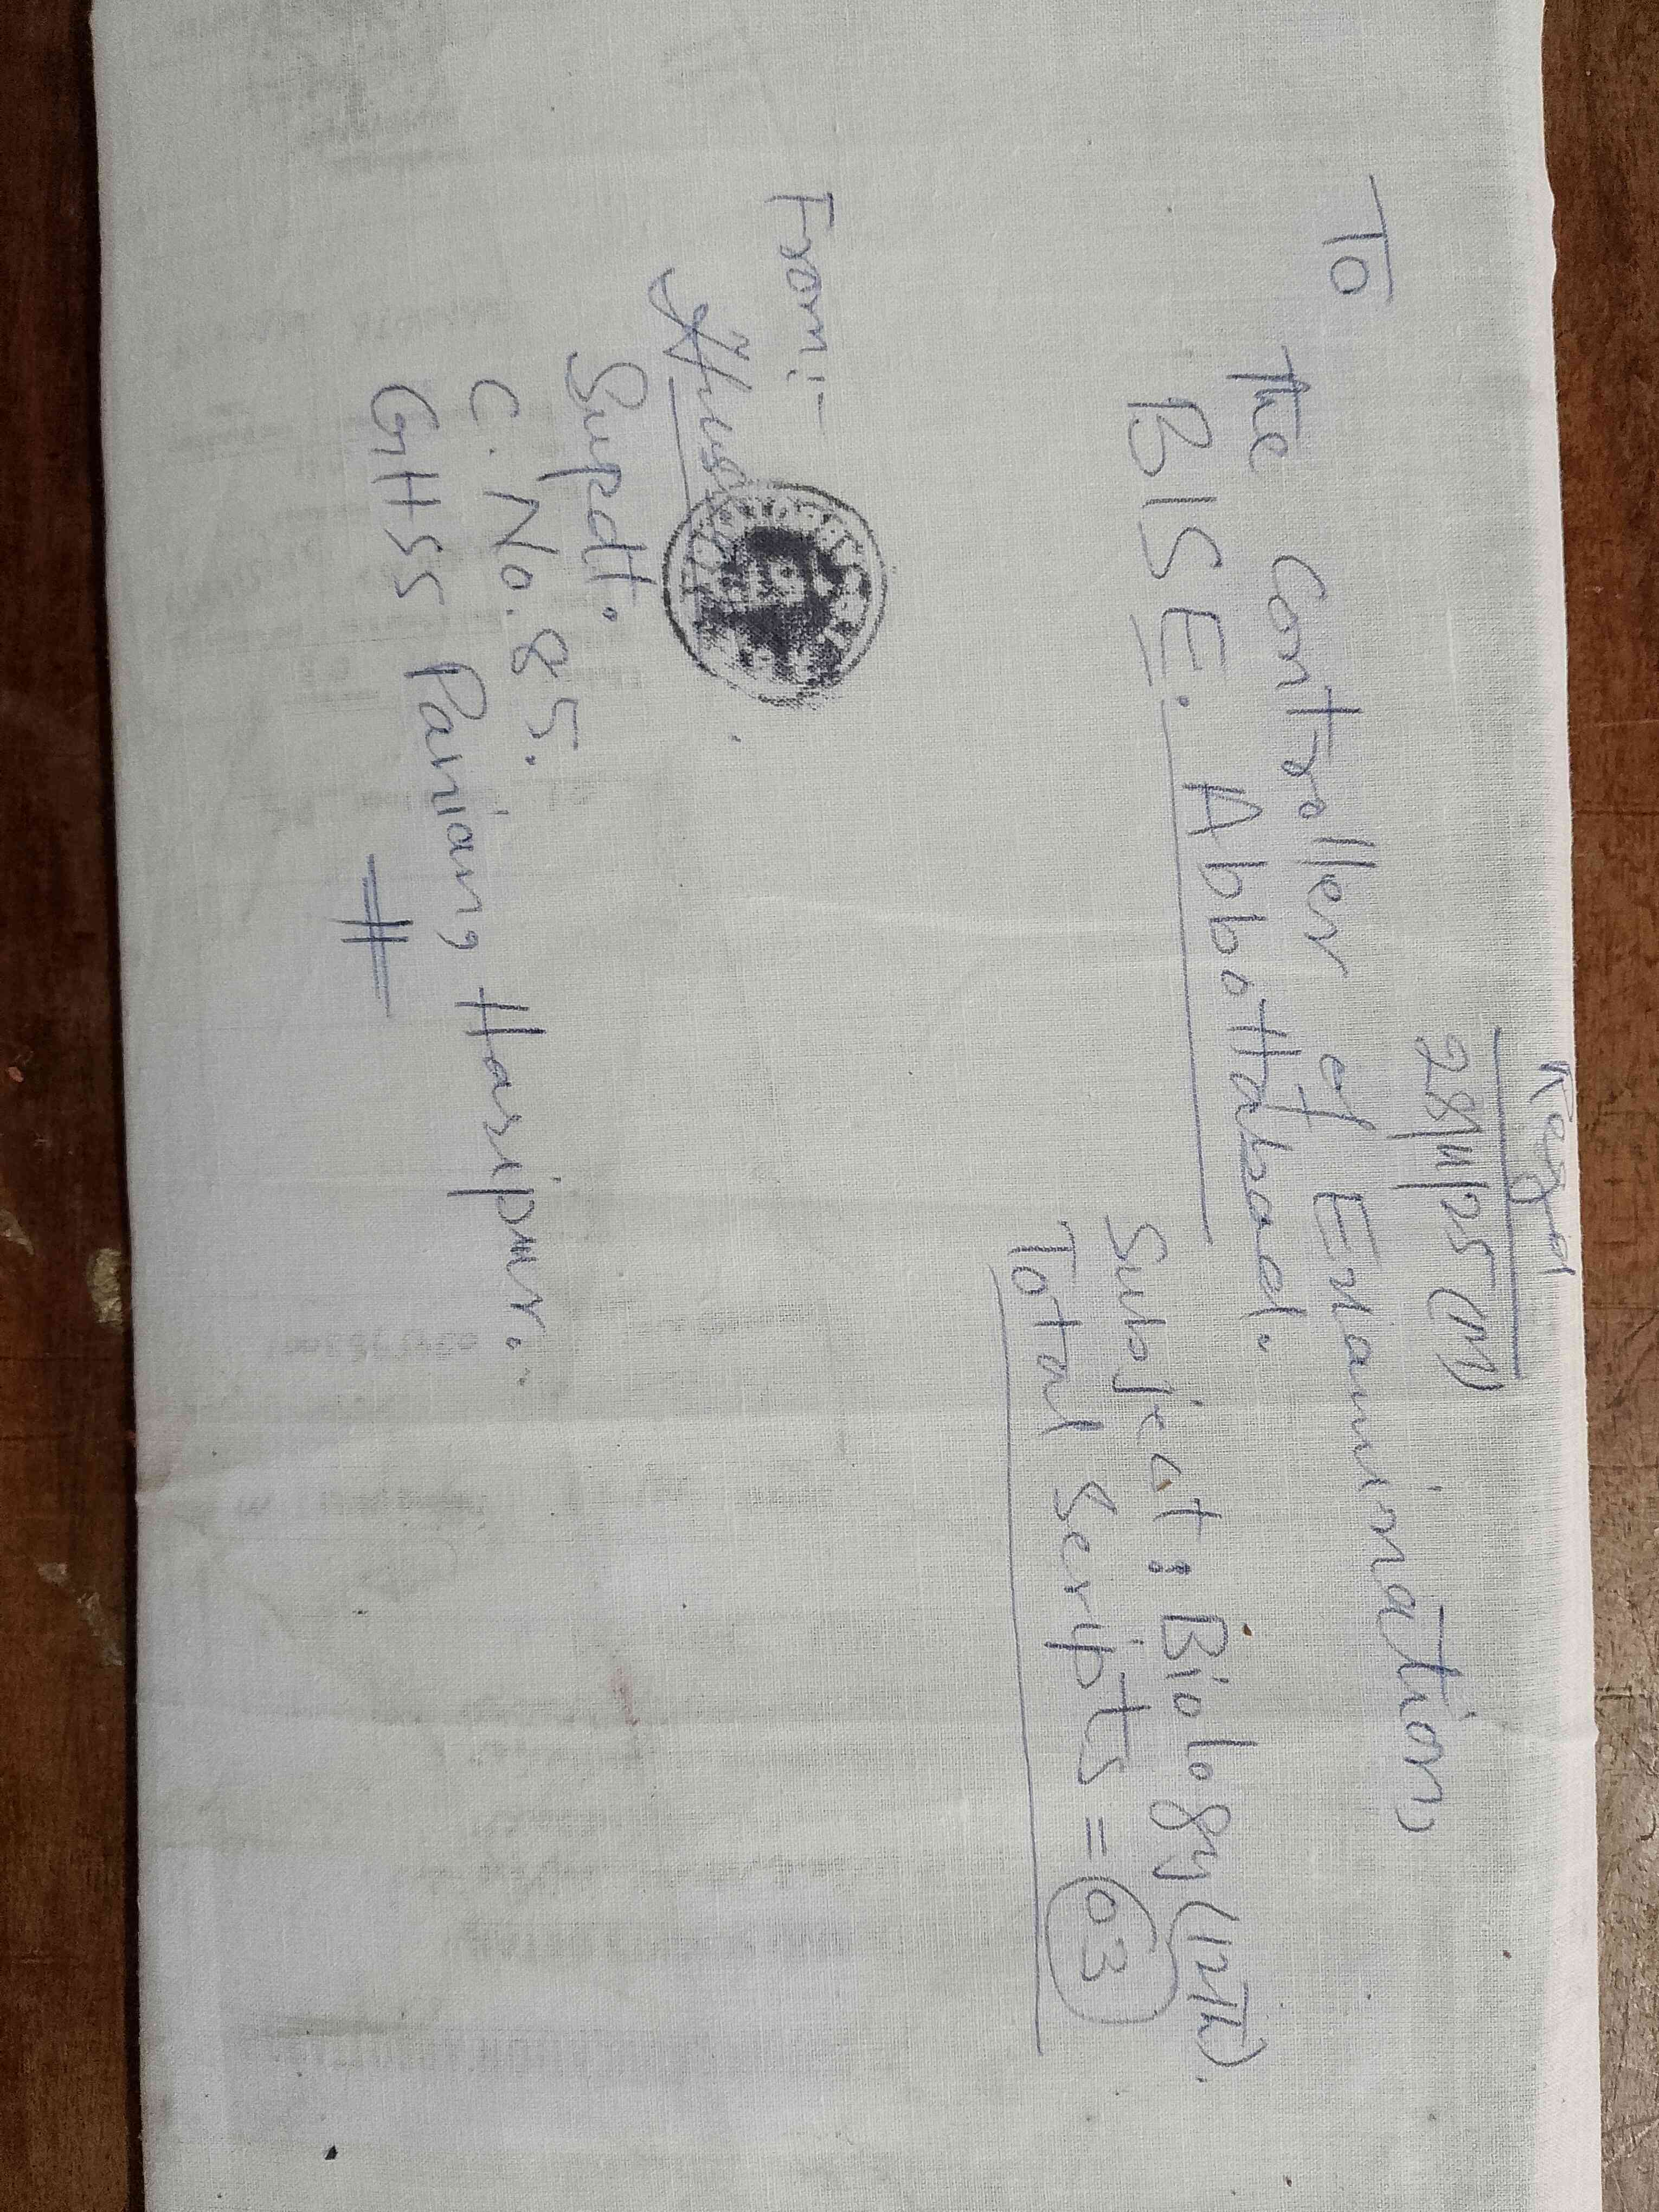 Regd
28/11/25 (M)
To
The Controller of Examination,
BISE. Abbottabad.
Subject: Biology (12Th).
Total Scripts = 03
From:-
Supdt.
C. No. 85.
GHSS Panian, Haripur.